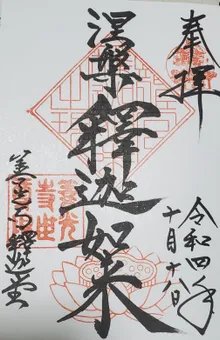 奉拝
令和四年
十月十八日
涅槃釋迦如来
善光寺釋迦堂